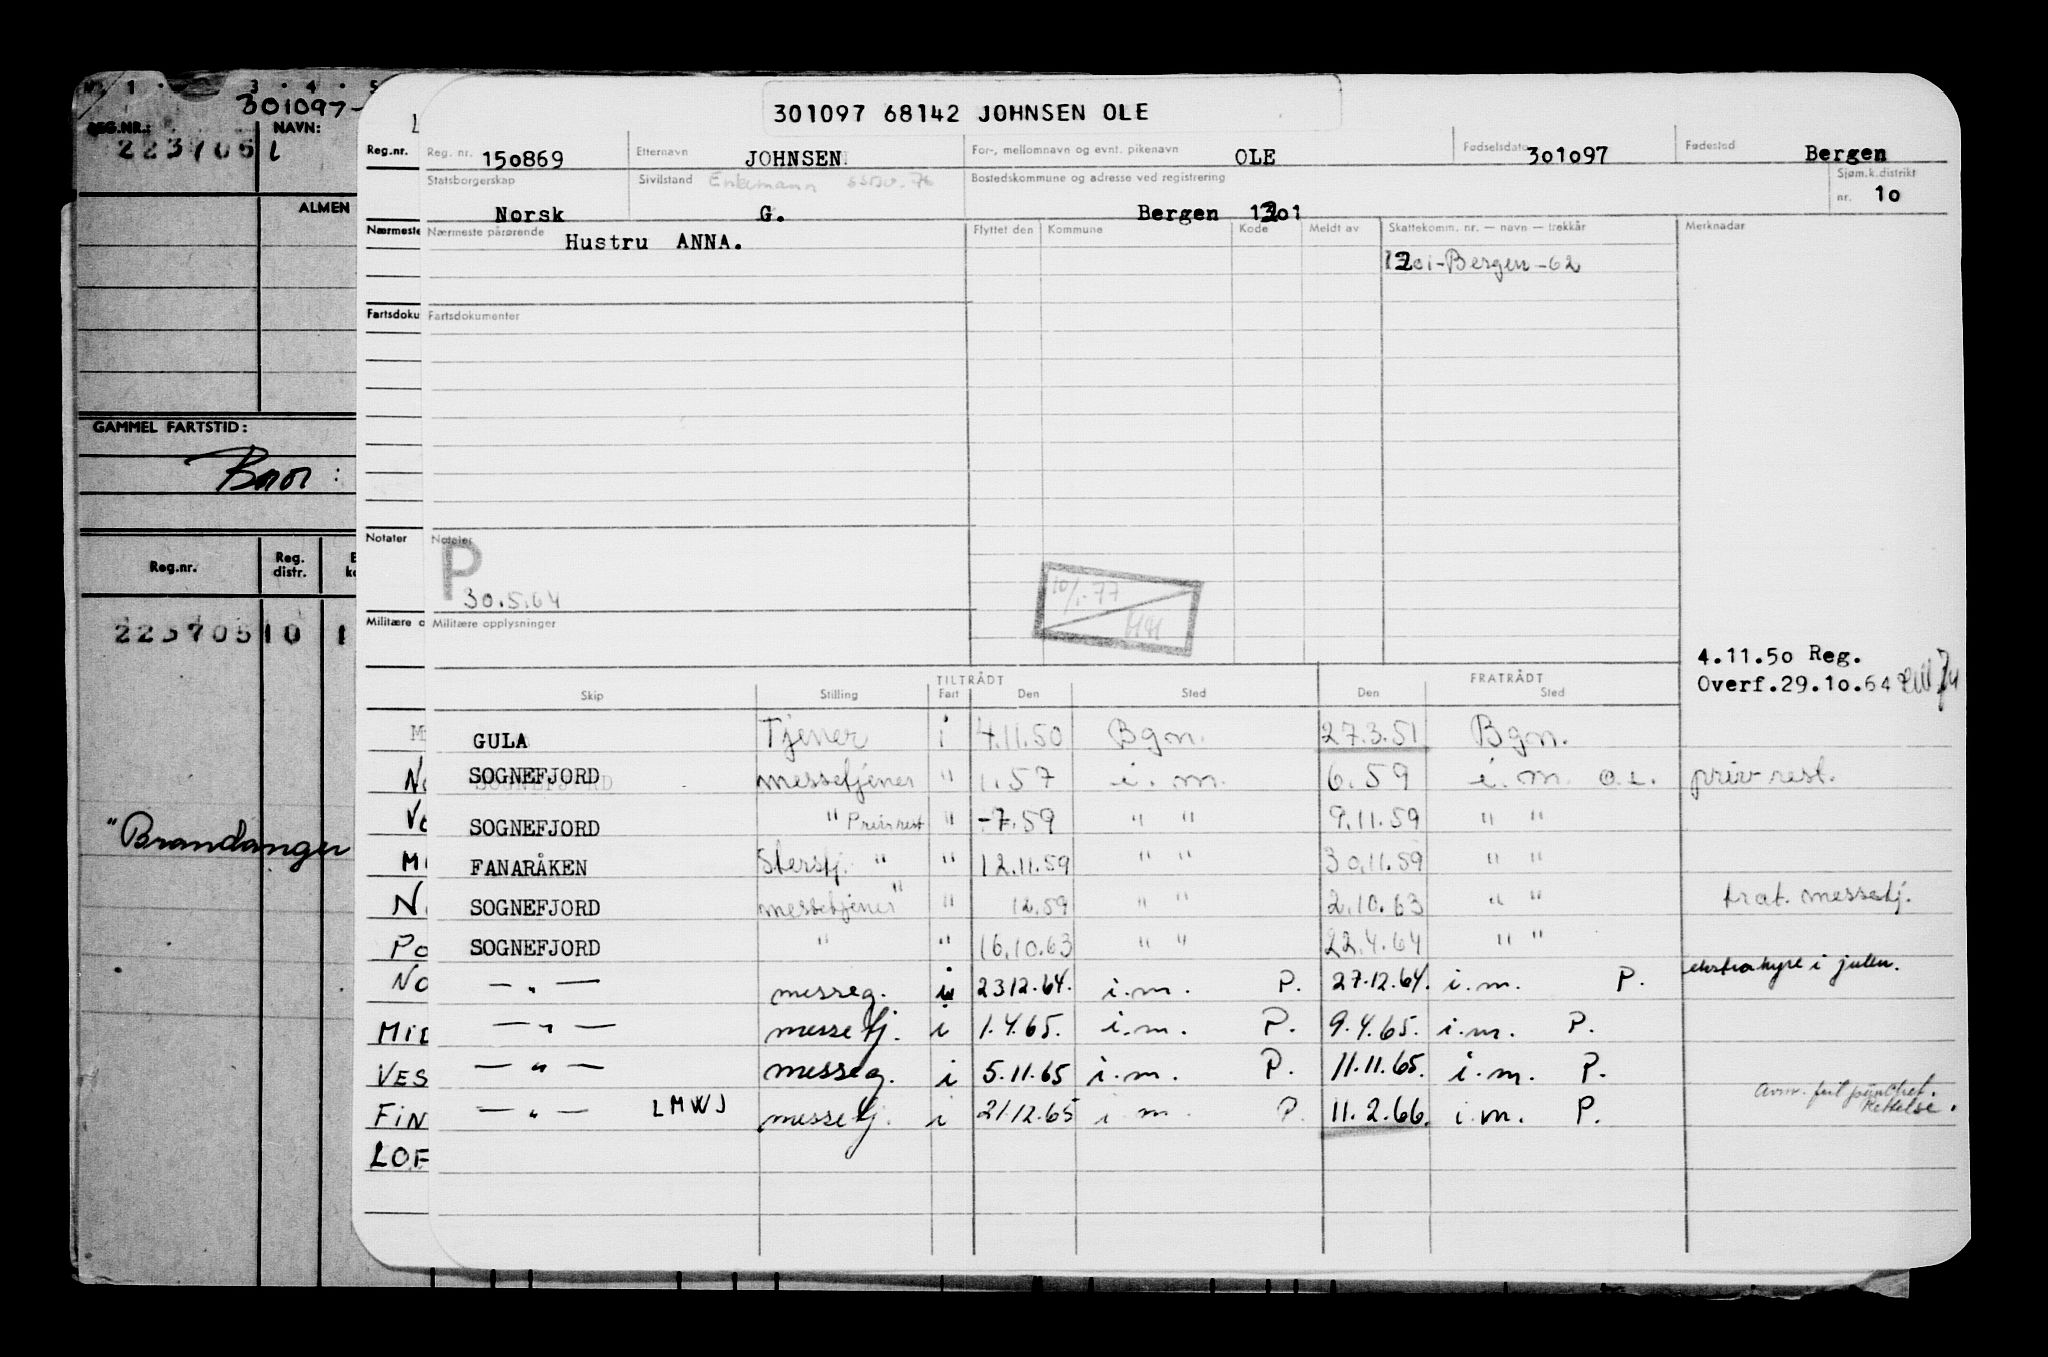 301097 68142 JOHNSEN OLE
Reg. nr. 150869 Etternavn JOHNSEN For-, mellomnavn og evnt. pikenavn OLE Fødselsdato 301097 Fødested Bergen
Statsborgerskap Norsk Sivilstand Enkemann G. Bostedskommune og adresse ved registrering Bergen 1201 Sjøm.k.distrikt nr. 10
Nærmeste pårørende Hustru ANNA. Flyttet den Kommune Kode Meldt av Skattekomm. nr. — navn — trekkår Merknader
1201-Bergen-62
Fartsdokumenter
Notater
P
30.5.64
10/1-77
Militære opplysninger
4.11.50 Reg.
Overf.29.10.64
TILTRÅDT FRATRÅDT
Skip Stilling Fart Den Sted Den Sted
GULA Tjener i 4.11.50 Bgn. 27.3.51 Bgn.
SOGNEFJORD messetjener " 1.57 i.m. 6.59 i.m. priv rest.
SOGNEFJORD " Priv rest " -7.59 " " 9.11.59 " "
FANARÅKEN " " 12.11.59 " " 30.11.59 " "
SOGNEFJORD messetjener " " 12.59 " " 2.10.63 " " frat. messetj.
SOGNEFJORD " " 16.10.63 " " 22.4.64 " "
— " — messeg. i 23.12.64. i.m. P. 27.12.64. i.m. P. ekstrahyre i julen.
— " — messetj. i 1.4.65. i.m. P. 9.4.65. i.m. P.
— " — messeg. i 5.11.65 i.m. P. 11.11.65. i.m. P.
— " — LMWJ messetj. i 21.12.65 i.m. P. 11.2.66. i.m. P.
Reg.nr.
Nærmeste
Fartsdoku
Notater
Militære o
No
MID
VES
FIN
LOF
1 3 4 5
301097-
REG.NR.: NAVN:
223705 L
ALMEN
GAMMEL FARTSTID:
Reg.nr. Reg. distr.
223705 10 1
"Brandanger